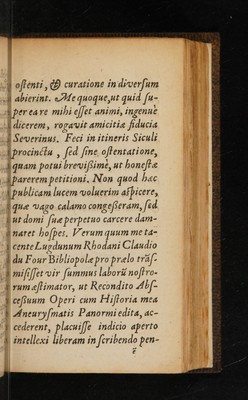 ostenti, & curatione in diversum
abierint. Me quoque, ut quid su-
per ea re mihi esset animi, ingenuè
dicerem, rogavit amicitiæ fiducia
Severinus. Feci in itineris Siculi
procinctu, sed sine ostentatione,
quam potui brevißimè, ut honestæ
parerem petitioni. Non quod hæc
publicam lucem voluerim aspicere,
quæ vago calamo congeßeram, sed
ut domi suæ perpetuo carcere dam-
naret hospes. Verum quum me ta-
cente Lugdunum Rhodani Claudio
du Four Bibliopolæ pro prælo trãs-
misisset vir summus laborũ nostro-
rum æstimator, ut Recondito Abs-
ceßuum Operi cum Historia mea
Aneurysmatis Panormi edita, ac-
cederent, placuisse indicio aperto
intellexi liberam in scribendo pen-